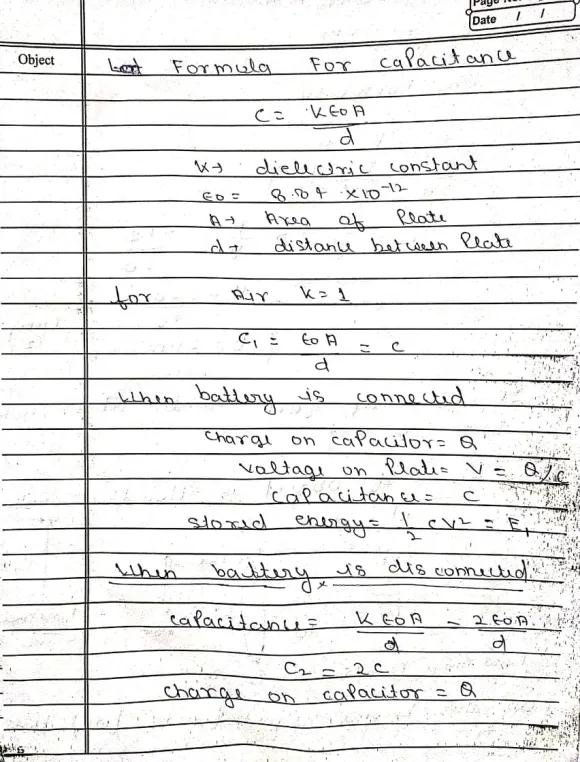 Page No.
Date / /
Object
Formula For capacitance
C = KϵoA / d
K→ dielectric constant
ϵo = 8.854 ×10⁻¹²
A→ Area of Plate
d→ distance between Plate
for Air K=1
C₁ = ϵoA / d = C
When battery is connected
Charge on capacitor = Q
Voltage on Plate = V = Q/C
Capacitance = C
Stored energy = 1/2 CV² = E₁
When battery is disconnected
capacitance = KϵoA / d = 2ϵoA / d
C₂ = 2C
charge on capacitor = Q